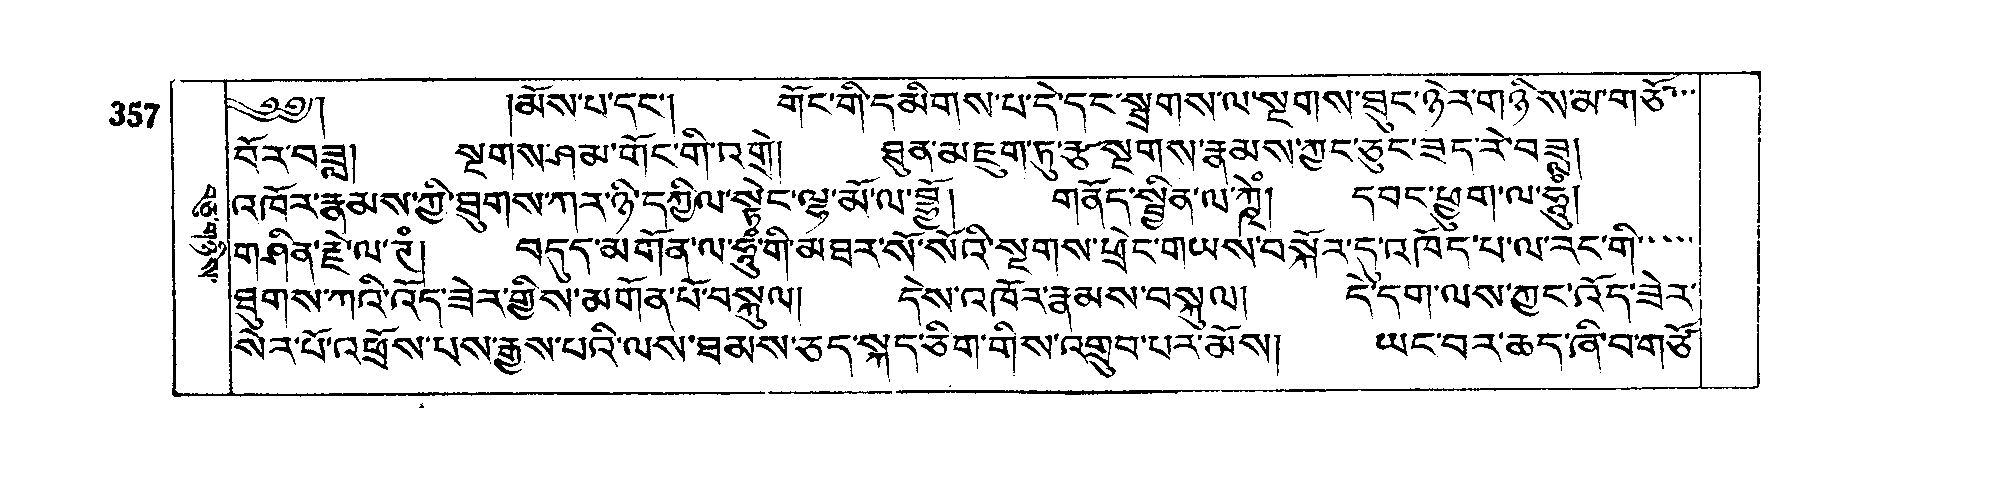 357
༄༅། །མོས་པ་དང་། གོང་གི་དམིགས་པ་དེ་དང་སྦྲགས་ལ་སྔགས་ཐུང་ཉེར་གཉིས་མ་གཙོ་
བོར་བཟླ། སྔགས་ཤམ་གོང་གི་འགྲེ། ཐུན་མཇུག་ཏུ་རྩ་སྔགས་རྣམས་ཀྱང་ཅུང་ཟད་རེ་བཟླ།
འཁོར་རྣམས་ཀྱི་ཐུགས་ཀར་ཉི་དཀྱིལ་སྟེང་ལྷ་མོ་ལ་བྷྱོ། གནོད་སྦྱིན་ལ་ཀླཱིཾ། དབང་ཕྱུག་ལ་ཧཱུྃ།
གཤིན་རྗེ་ལ་ཡཾ། བདུད་མགོན་ལ་ཧཱུྃ་གི་མཐར་སོ་སོའི་སྔགས་ཕྲེང་གཡས་བསྐོར་དུ་འཁོད་པ་ལ་རང་གི་
ཐུགས་ཀའི་འོད་ཟེར་གྱིས་མགོན་པོ་བསྐུལ། དེས་འཁོར་རྣམས་བསྐུལ། དེ་དག་ལས་ཀྱང་འོད་ཟེར་
སེར་པོ་འཕྲོས་པས་རྒྱས་པའི་ལས་ཐམས་ཅད་སྐད་ཅིག་གིས་འགྲུབ་པར་མོས། ཡང་བར་ཆད་ཞི་བ་གཙོ་